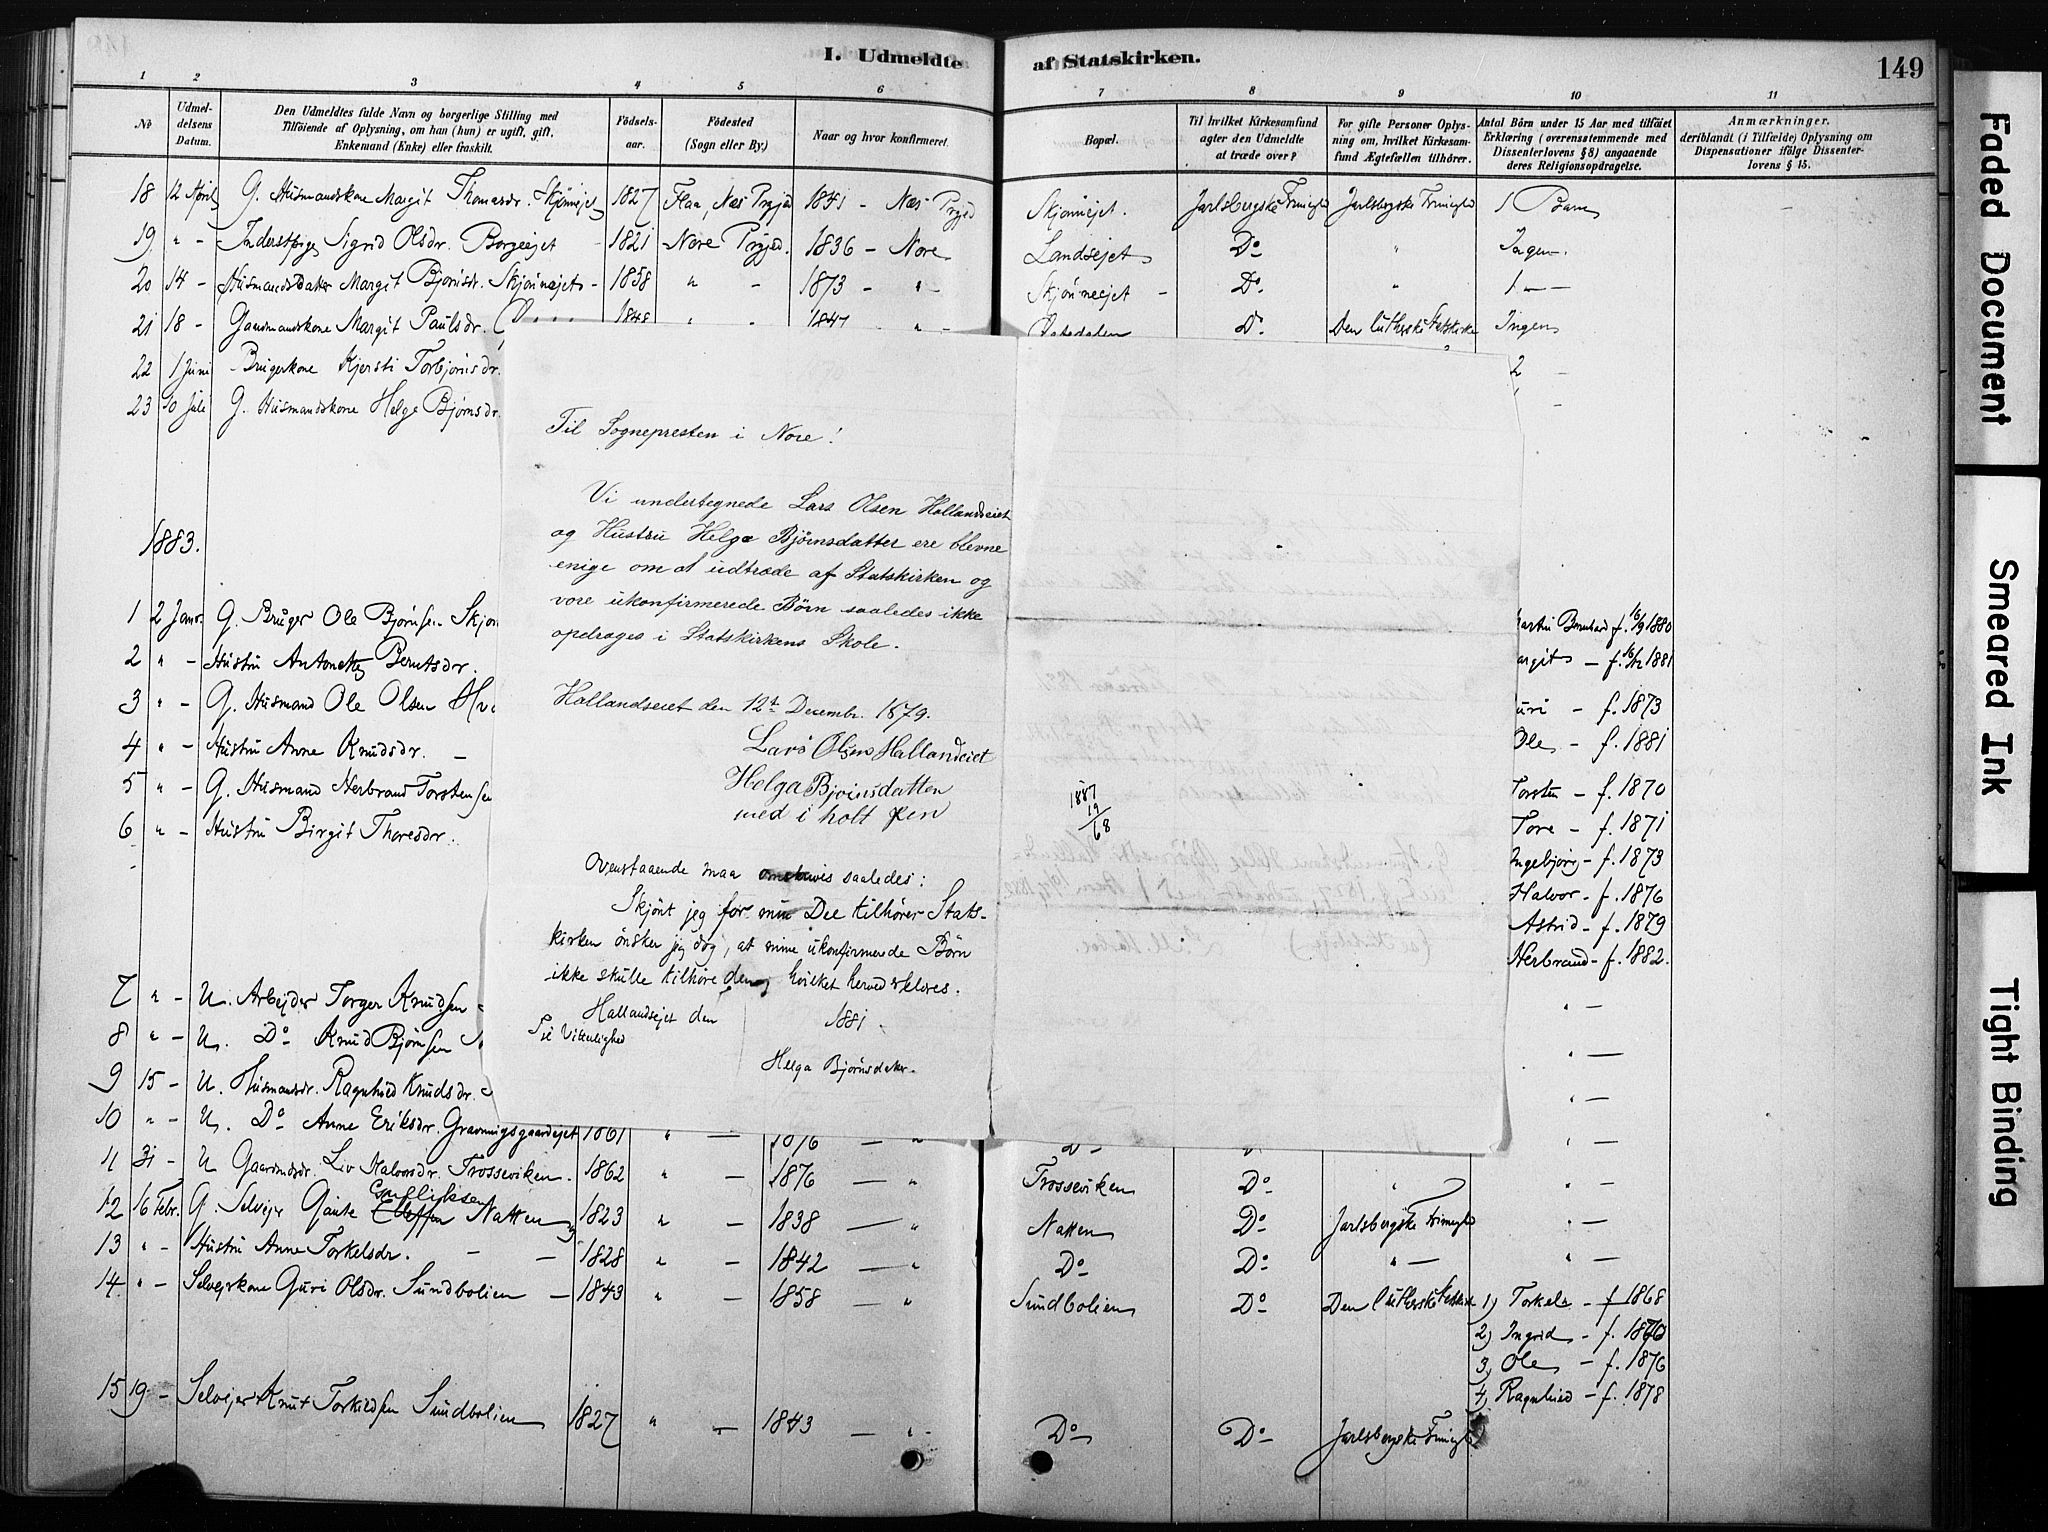 I. Udmeldte af Statskirken.
149
1 2 3 4 5 6 7 8 9 10 11
No
Udmeldelsens Datum.
Den Udmeldtes fulde Navn og borgerlige Stilling med
Tilføiende af Oplysning, om han (hun) er ugift, gift,
Enkemand (Enke) eller fraskilt.
Fødsels-
aar.
Fødested
(Sogn eller By.)
Naar og hvor konfirmeret.
Bopæl.
Til hvilket Kirkesamfund
agter den Udmeldte
at træde over?
For gifte Personer Oplys-
ning om, hvilket Kirkesam-
fund Ægtefællen tilhører.
Antal Børn under 15 Aar med tilføiet
Erklæring (overensstemmende med
Dissenterlovens § 8) angaaende
deres Religionsopdragelse.
Anmærkninger.
deriblandt (i Tilfælde) Oplysning om
Dispensationer ifølge Dissenter-
lovens § 15.
18 12 April G. Husmandskone Margit Thomasdr. Skjønnejet 1827 Flaa, Næs Prgjd 1841 - Næs Prgjd Skjønnejet. Jarlsbergske Frimigh Jarlsbergske Frimigh 1 Barn -
19 " - Inderstpige Sigrid Olsdr. Borgeejet - 1821 Nore Prgjed. 1836 - Nore Landsejet Do " Ingen.
20 14 - Husmandsdatter Margit Bjørnsdr. Skjønnejet - 1858 " - 1873 - " - Skjønneejet - Do. " 1 -
21 18 - Gaardmandskone Margit Paulsdr. 1848 " 1847 - " - Do. Den lutherske Statskirke Ingen
22 1 Juni Brugerkone Kjersti Torbjørnsdr. 2 -
23 10 Juli G. Husmandskone Helge Bjørnsdr. -
Til Sognepresten i Nore!
Vi undertegnede Lars Olsen Hallandseiet
og Hustru Helga Bjørnsdatter ere blevne
enige om at udtræde af Statskirken og
vore ukonfirmerede Børn saaledes ikke
opdrages i Statskirkens Skole.
Hallandseiet den 12te Decembr. 1879.
Lars Olsen Hallandeiet
Helga Bjoinsdatten
med i holt pen
Ovenstaaende maa omskrives saaledes:
Skjønt jeg for min Del tilhører Stats-
kirken ønsker jeg dog, at mine ukonfirmerede Børn
ikke skulle tilhøre den, hvilket herved erklæres.
Hallandsejet den 1881.
Til Vitterlighed
Helga Bjørnsdatter.
1887
19
68
1883.
1 2 Janr. G. Bruger Ole Bjørnsen Skjøn
artin Bernhard f. 16/9 1880
2 " - Hustru Antonette Berntsdr.
argit - f. 16/12 1881
3 " - G. Husmand Ole Olsen
uri - f. 1873
4 " - Hustru Anne Knudsdr. -
Ole - f. 1881
5 " - G. Husmand Herbrand Torstensen
Torsten - f. 1870
6 " - Hustru Birgit Thoresdr.
Tore - f. 1871
Ingebjørg - f. 1873
Halvor - f. 1876
Astrid - f. 1879
Herbrand - f. 1882.
7 " - U. Arbejder Torger Knudsen " -
8 " - U. Do Knud Bjørnsen " -
9 15 - U. Husmandsdr. Ragnhild Knudsdr. " -
10 " - U. Do Anne Eriksdr. Gravningsgaardejet 1861 " - 1876 - " Do " -
11 31 - U Gaardmdsdr. Liv Halvorsdr. Trosseviken. 1862 " - 1876 - " Trosseviken Do " " -
Engeliksen
12 16 Febr. G. Selvejer Gaute Ellefsen Natten 1823 " - 1838 - " Natten Do Jarlsbergske Frimegh " -
13 " - Hustru Anne Torkelsdr. - - 1828 " - 1842 - " Do Do " - " -
14. " - Selvejerkone Guri Olsdr. Sundbolien - 1843 " - 1858 - " Sundbolien Do Den lutherske Statskirke 1) Torkel - f 1868
2) Ingrid - f. 1870
3) Ole - f. 1876
4) Ragnhild - f. 1878
15 19 - Selvejer Knut Torkildsen Sundbolien 1827 " - 1843 - " - Do Do Jarlsbergske Frimegh
Faded Document
Smeared Ink
Tight Binding